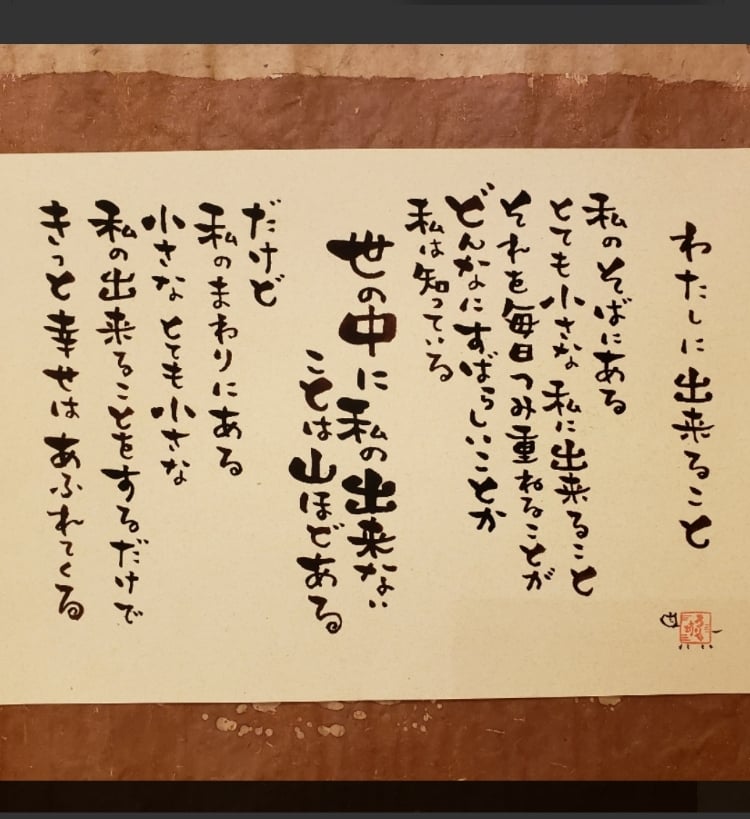 わたしに出来ること
私のそばにある
とても小さな 私に出来ること
それを毎日つみ重ねることが
どんなにすばらしいことか
私は知っている
世の中に私の出来ない
ことは山ほどある
だけど
私のまわりにある
小さな とても小さな
私の出来ることをするだけで
きっと幸せは あふれてくる